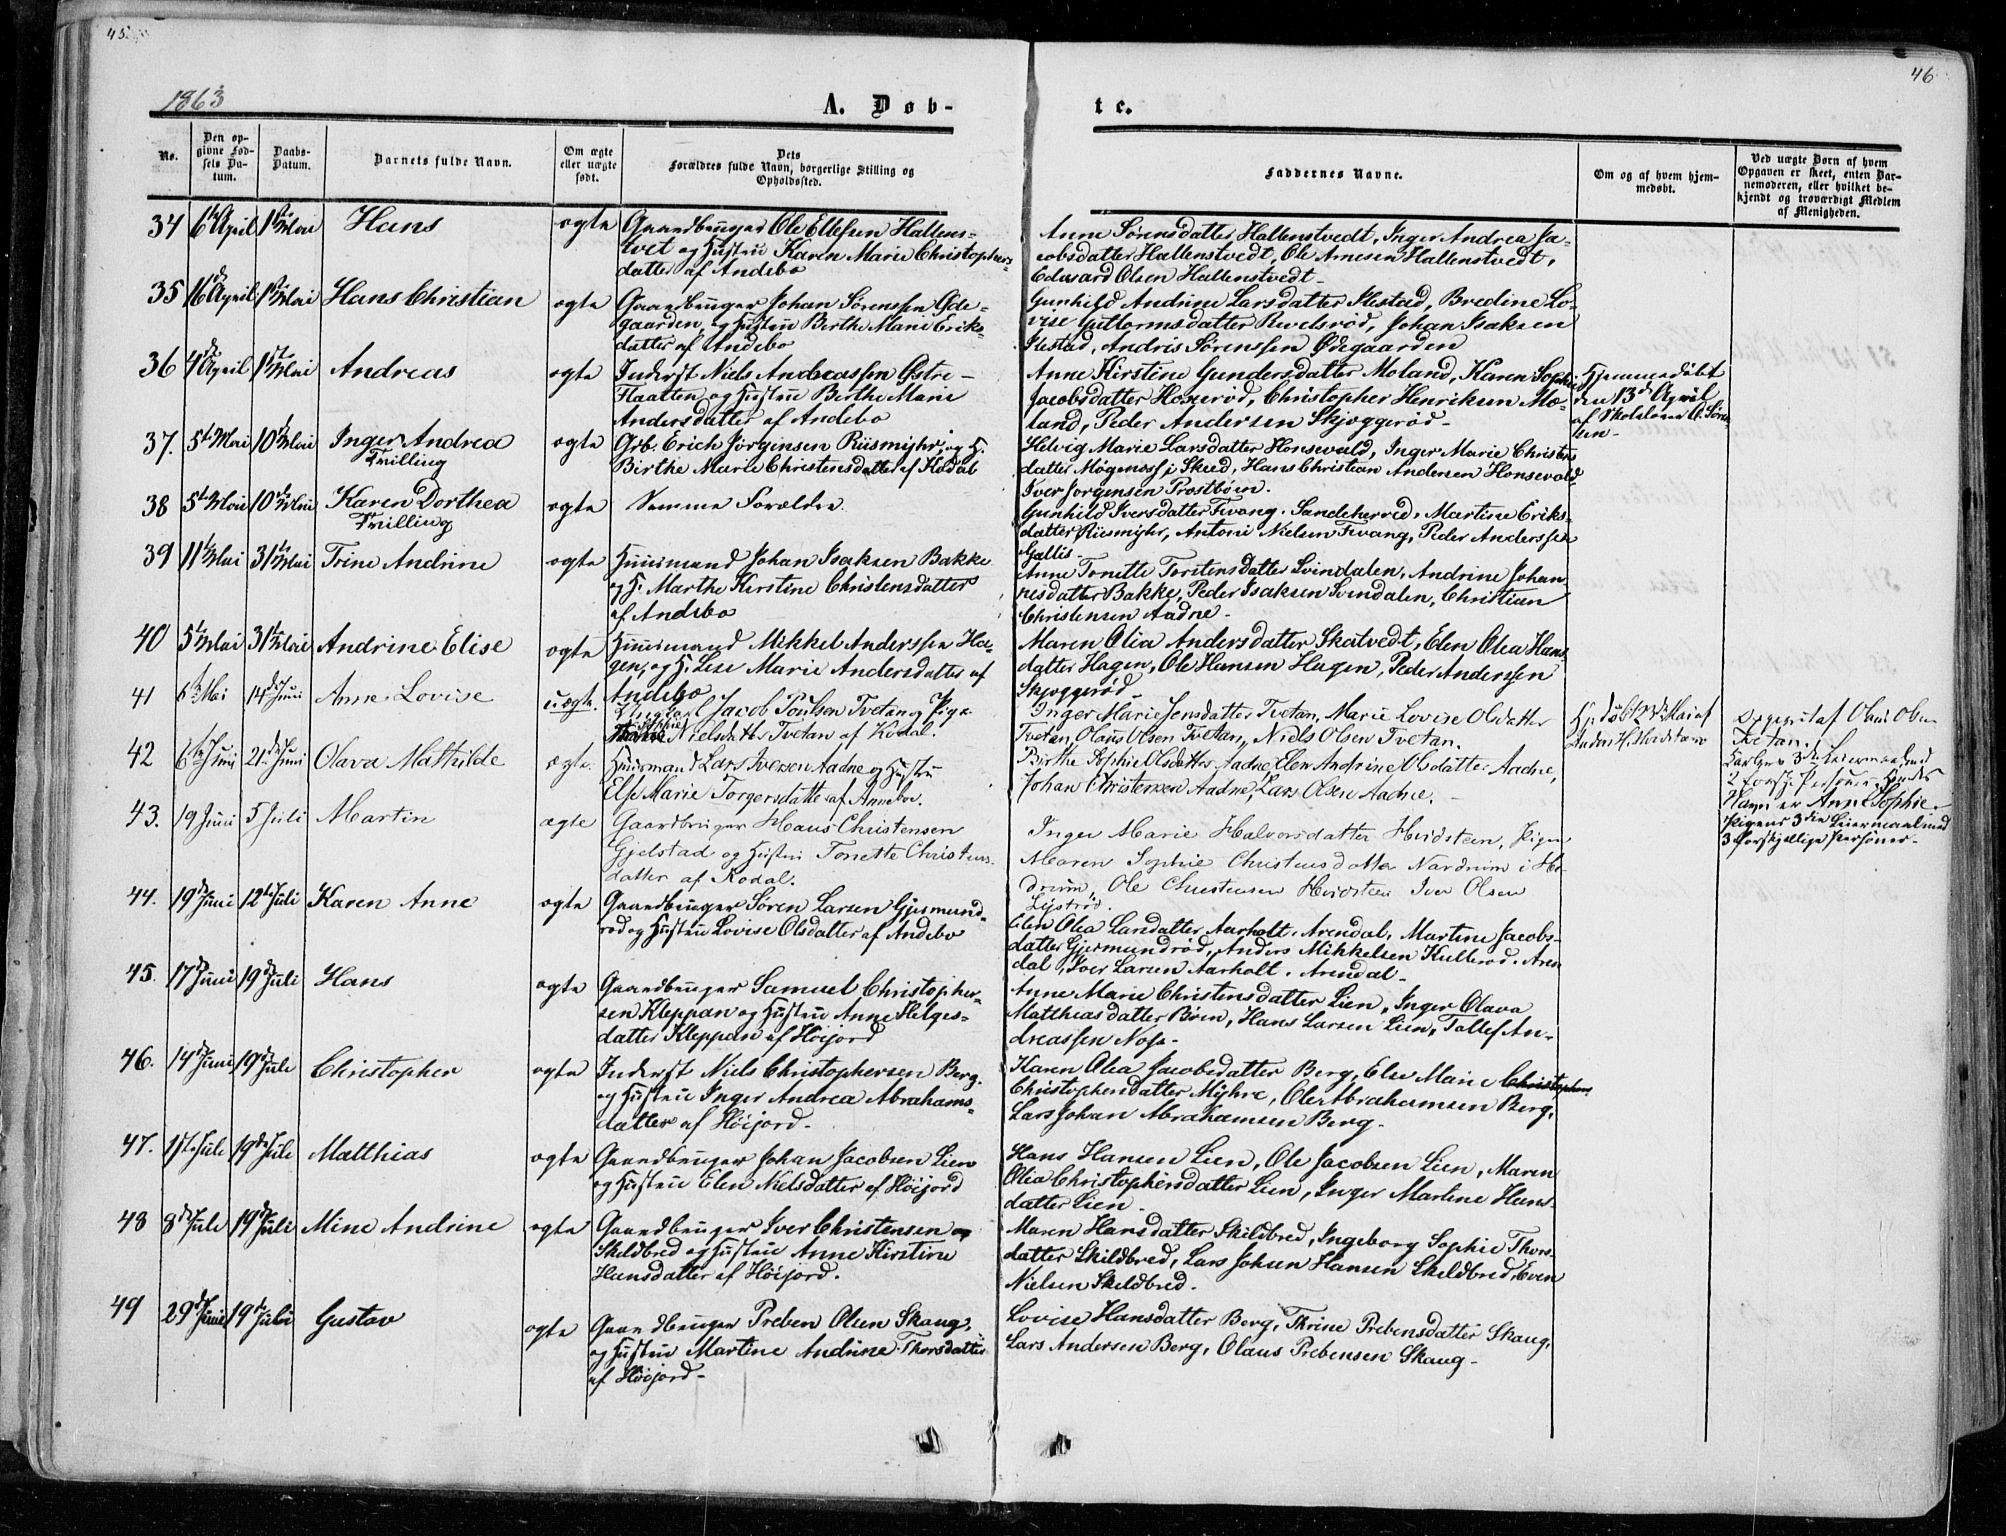 45
46
1863
A. Døb-
te.
No.
Den op-
givne Fød-
sels Da-
tum.
Daabs-
Datum.
Barnets fulde Navn.
Om ægte
eller uægte
født.
Dets
Forældres fulde Navn, borgerlige Stilling og
Opholdssted.
Faddernes Navne.
Om og af hvem hjem-
medøbt.
Ved uægte Børn af hvem
Opgaven er skeet, enten Bar-
nemoderen, eller hvilket be-
kjendt og troværdigt Medlem
af Menigheden.
34 6te April 1ste Mai Hans ægte Gaardbruger Ole Ellefsen Hallens-
tvet og Hustru Karen Marie Christophers-
datter af Andebo
Anne Sørensdatter Hallenstvedt, Inger Andrea Ja-
cobsdatter Hallenstvedt, Ole Arnesen Hallenstvedt,
Edvard Olsen Hallenstvedt-
35 16de April 1ste Mai Hans Christian ægte Gaardbruger Johan Sørenssen Øde-
gaarden, og Hustru Berthe Marie Eriks-
datter af Andebo
Gunhild Andrine Larsdatter Ilestad, Bredine Lo-
vise Guttormsdatter Revelsrød, Johan Isaksen
Ilestad, Andris Sørenssen Ødegaarden
36 4de April 1ste Mai Andreas ægte Inderst Niels Andreassen Østre-
Flaatten og Hustru Berthe Marie
Andersdatter af Andebo
Anne Kirstine Gundersdatter Moland, Karen Sophie
Jacobsdatter Honerød, Christopher Henriksen Mo-
land, Peder Andersen Skjøggerød-
Hjemmedøbt
den 13de April
af Skolelærer O. Søren-
sen-
37. 5te Mai 10de Mai Inger Andrea ægte Grb. Erich Jørgensen Riismyhr, og H.
Tvilling
Birthe Marie Christensdatter af Kodal
Helvig Marie Larsdatter Honsevald, Inger Marie Christens-
datter Møgenoss i Skeed, Hans Christian Andersen Honsevald,
Iver Jørgensen Prestbøen.
38 5te Mai 10de Mai Karen Dorthea ægte Samme Forældre.
Tvilling
Gunhild Iversdatter Fevang. Sandeherred, Martine Eriks-
datter Riismyhr, Antoni Nielsen Fevang, Peder Anderssen
Gallis-
39 11te Mai 31te Mai Trine Andrine ægte Huusmand Johan Isaksen Bakke
og H. Marthe Kirstine Christensdatter
af Andebo
Anne Tonette Torstensdatter Svindalen, Andrine Johan-
nesdatter Bakke, Peder Isaksen Svindalen, Christian
Christensen Aadne-
40 5te Mai 31te Mai Andrine Elise ægte Huusmand Mikkel Anderssen Ha-
gen, og H. Lise Marie Andersdatter af
Andebo
Maren Olia Andersdatter Skatvedt, Elen Olea Hans-
datter Hagen, Ole Hansen Hagen, Peder Anderssen
Skjøggerød-
41 6te Mai 14de Juni Anne Lovise uægte. Jacob Poulsen Tvetan og Pige
Nielsdatter Tvetan af Kodal.
Inger Marie Jensdatter Tvetan, Marie Lovise Olsdatter
Tvetan, Olaus Olsen Tvetan, Niels Olsen Tvetan.
Hj. døbt 22de Mai af
Anders H. Hvidsteen
Opgivet af Olaus Olsen
Tvetan.
Faders 3die Leiermaal med
2 forskj. Personer. Hendes
Navn er Anne Sophie.
Pigens 3die Leiermaal med
3 forskjellige Personer-
42 6te Juni 21de Juni Olava Mathilde ægte. Huusmand Lars Iversen Aadne og Hustru
Else Marie Torgersdatter af Annebo.
Birthe Sophie Olsdatter Aadne, Elen Andrine Olsdatter Aadne,
Johan Christensen Aadne, Lars Olsen Aadne.-
43. 19 Juni 5 Juli Martin ægte Gaardbruger Hans Christensen
Gjelstad og Hustru Tonette Christens-
datter af Kodal.
Inger Marie Halvorsdatter Hvidsteen, Pigen
Maren Sophie Christensdatter Nordrum i He-
drum, Ole Christensen Hvidsteen Iver Olsen
Lystrød.
44. 19de Juni 12te Juli Karen Anne ægte Gaardbruger Søren Larsen Gjermund-
rød og Hustru Lovise Olsdatter af Andebo
Elen Olea Larsdatter Aarholt. Arendal, Martine Jacobs-
datter Gjermundrød, Anders Mikkelsen Kullerød. Aren
dal, Iver Larsen Aarholt. Arendal-
45. 17de Juni 19de Juli Hans ægte Gaardbruger Samuel Christopher-
sen Kleppan og Hustru Anne Helges-
datter Kleppan af Høijord
Anne Marie Christensdatter Lien, Inger Olava
Matthiasdatter Bøen, Hans Larsen Lien, Tollef An-
dreassen Nose-
46. 14de Juni 19de Jule Christopher ægte Inderst Niels Christophersen Berg.
og Hustru Inger Andrea Abrahams-
datter af Høijord-
Karen Olea Jacobsdatter Berg, Else Marie Christophers
Christophersdatter Myhre, Ole Abrahamsen Berg,
Lars Johan Abrahamsen Berg-
47. 1ste Jule 19de Jule Matthias ægte Gaardbruger Johan Jacobsen Lien
og Hustru Elen Nielsdatter af Høijord
Hans Hansen Lien, Ole Jacobsen Lien, Maren
Olea Christophersdatter Lien, Inger Martine Hans-
datter Lien-
48 8de Jule 19de Juli Mine Andrine ægte Gaardbruger Iver Christensen og
Skildbred og Hustru Anne Kirstine
Hansdatter af Høijord.
Maren Hansdatter Skildbred, Ingeborg Sophie Thors-
datter Skildbred, Lars Johan Hansen Skildbred, Even
Nielsen Skildbred.
49 29de Juni 19de Juli Gustav ægte Gaardbruger Preben Olsen Skaug,
og Hustru Martine Andrine Thorsdatter
af Høijord-
Lovise Hansdatter Berg, Thrine Prebensdatter Skaug,
Lars Andersen Berg, Olaus Prebensen Skaug-